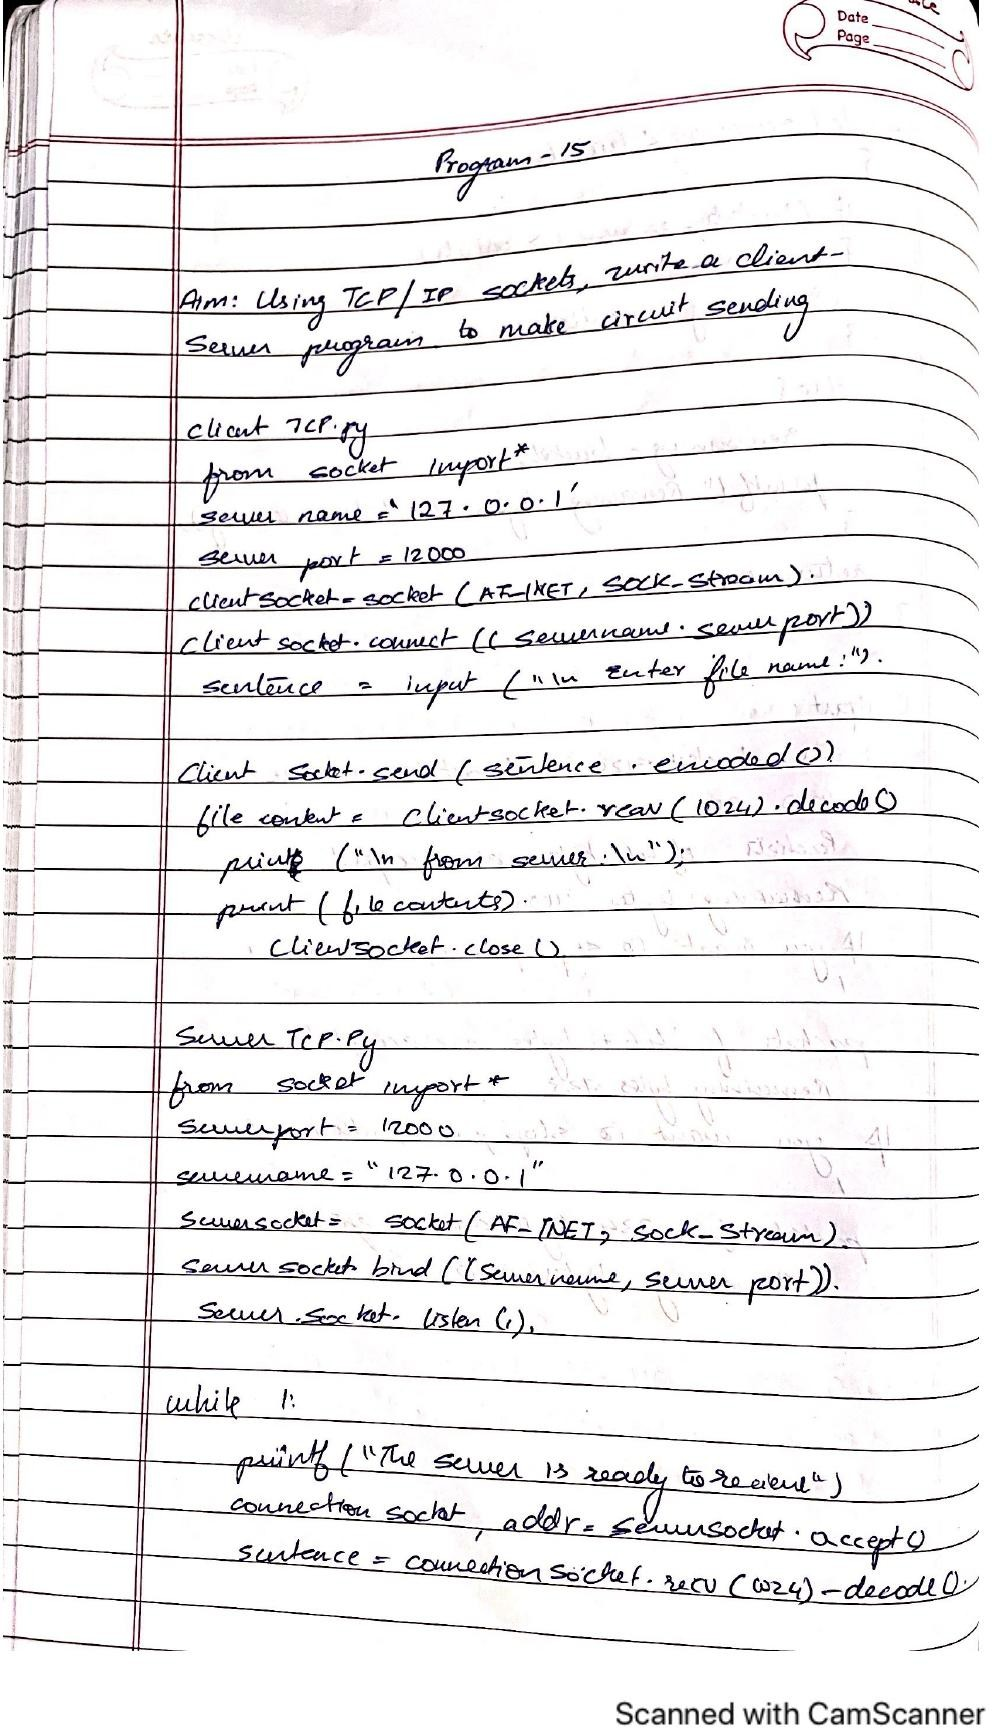 Date
Page
Program - 15
Aim: Using TCP/IP sockets, write a client-
Server program to make circuit sending
client TCP.py
from socket import*
server name = '127.0.0.1'
server port = 12000
clientsocket = socket (AF-INET, SOCK-Stream).
Client socket.connect ((servername.server port))
sentence = input ("\n Enter file name:").
Client socket.send (sentence . encoded ())
file content = Clientsocket.recv (1024).decode()
print ("\n from server:\n");
print (filecontents).
Clientsocket.close ()
Server TCP.Py
from socket import *
Serverport = 12000
servername = "127.0.0.1"
Serversocket = socket (AF-INET, sock-Stream).
server socket. bind ((Servername, server port)).
Server.socket. listen (1),
while 1:
printf ("The server is ready to recieve")
connection socket, addr = serversocket.accept()
sentence = connection socket.recv (1024)-decode().
Scanned with CamScanner